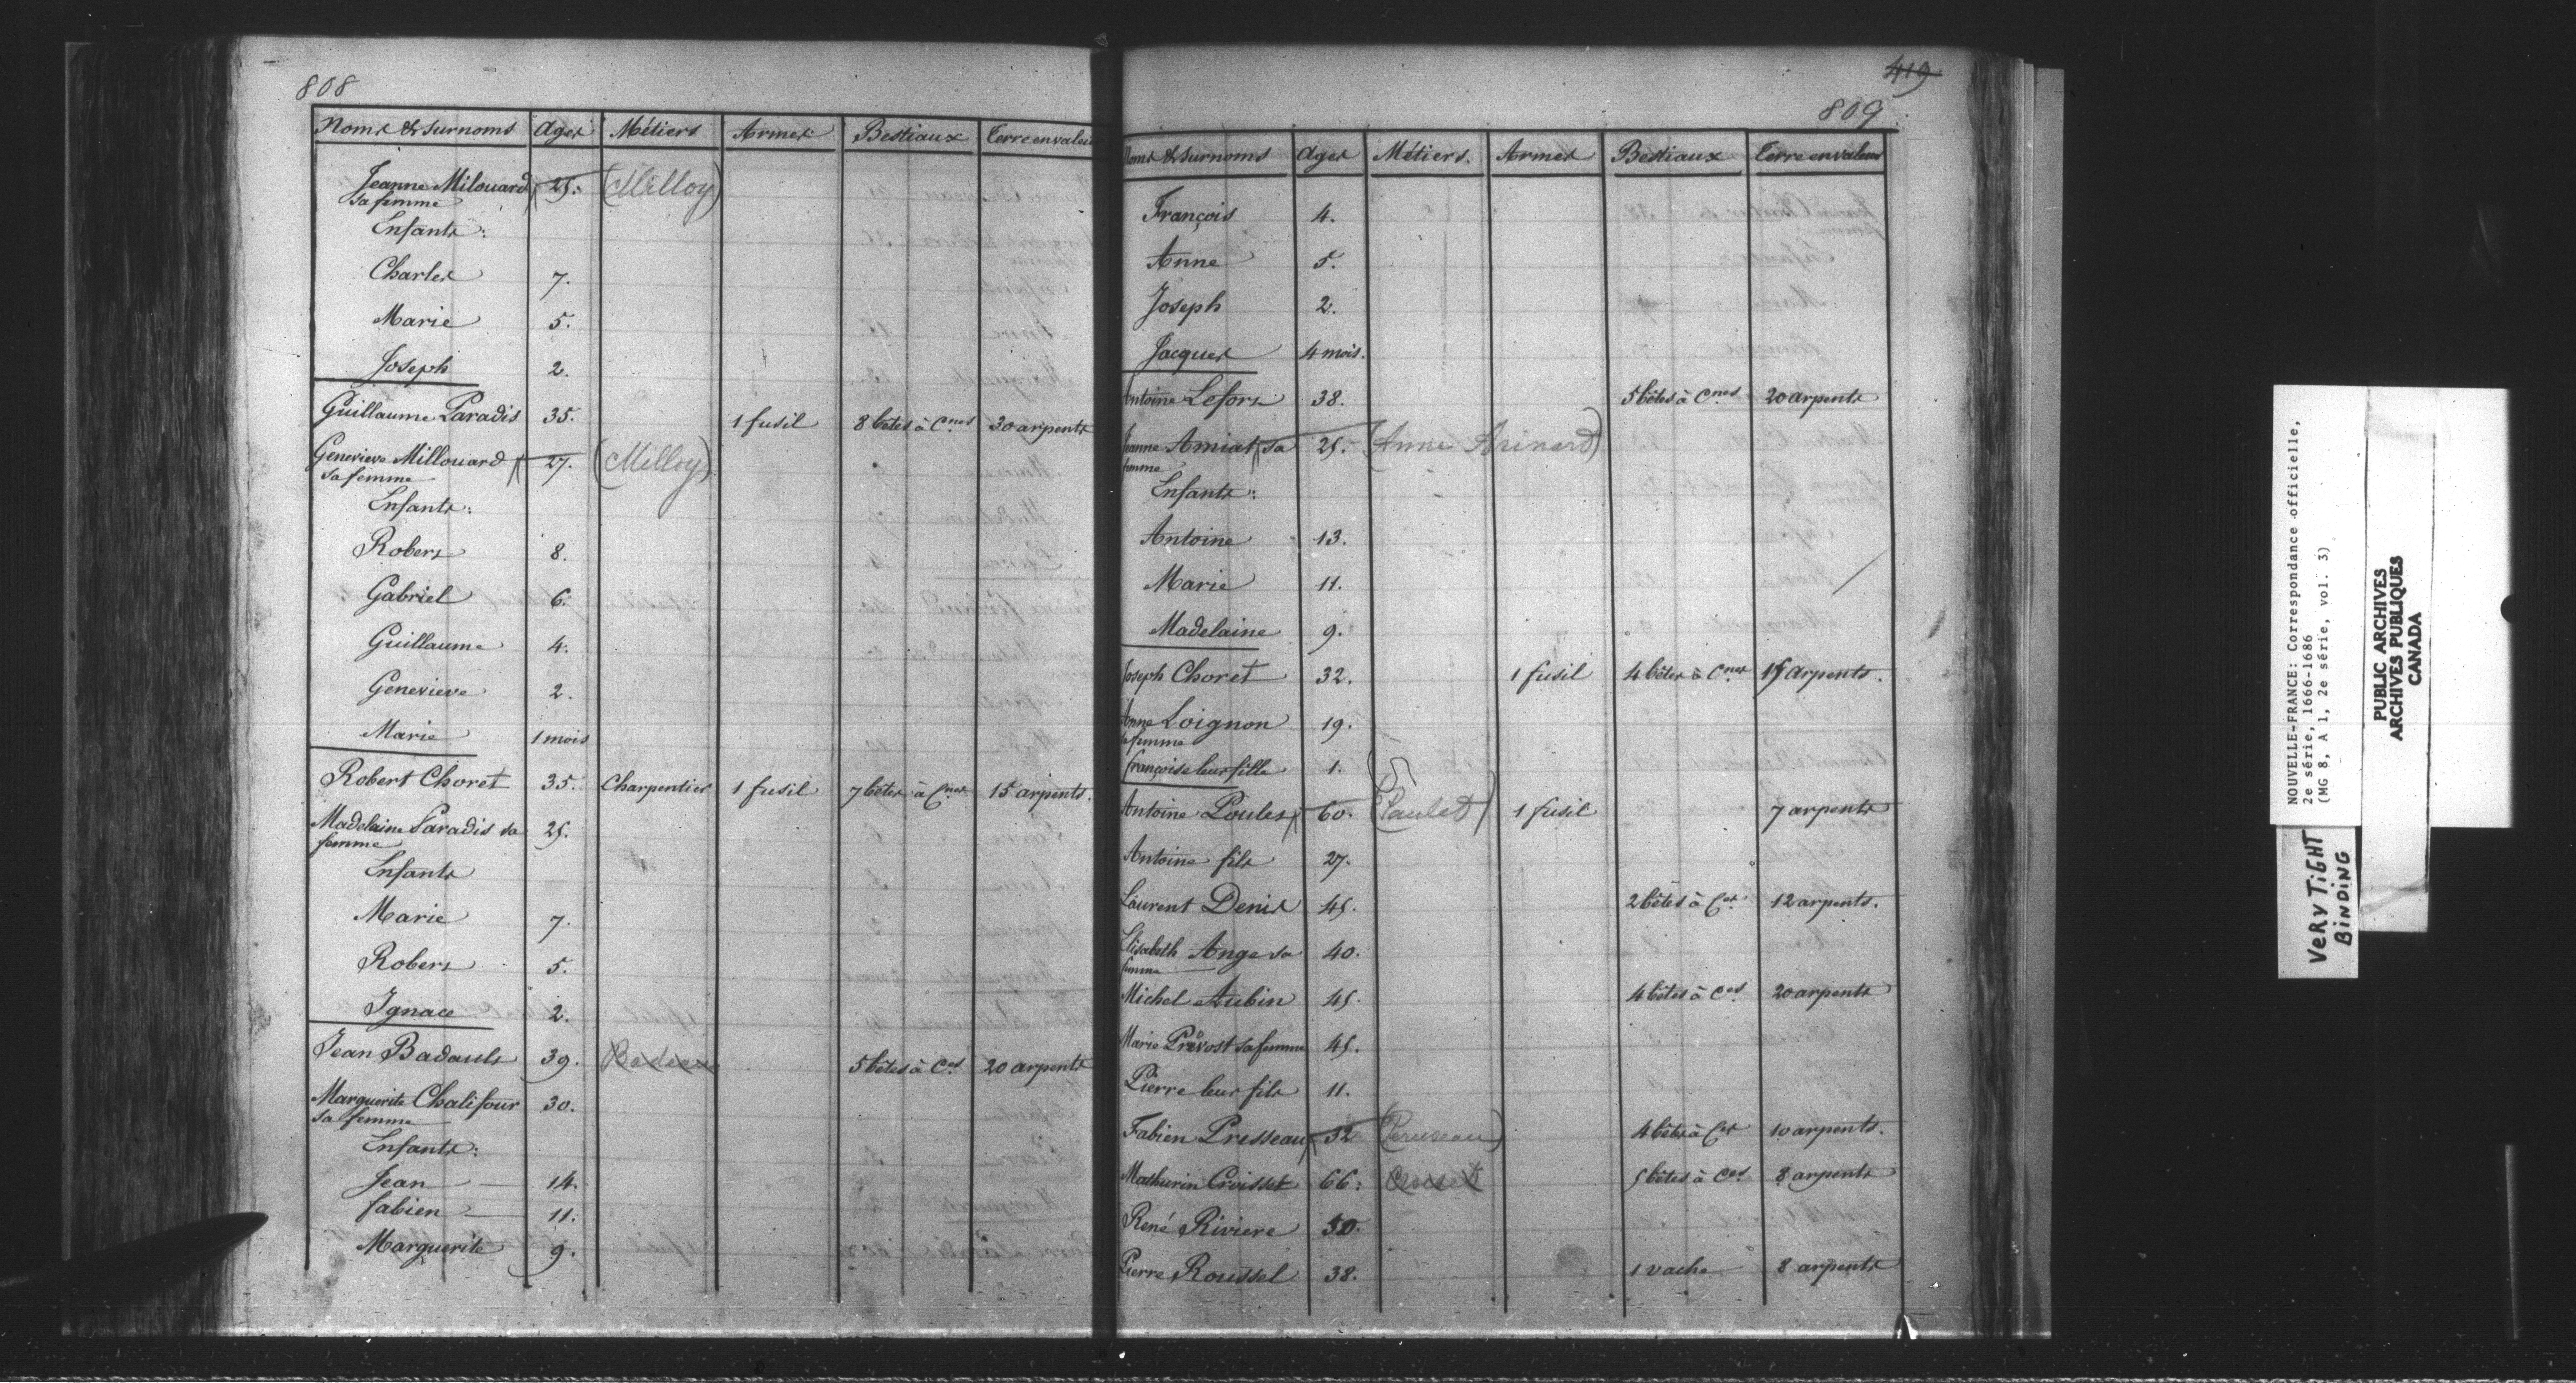 808
Noms & surnoms Ages Métiers Armes Bestiaux Terre en valeur
Jeanne Milouard 25. (Milloy)
sa femme
Enfants:
Charles 7.
Marie 5.
Joseph 2.
Guillaume Paradis 35. 1 fusil 8 bêtes à Cnes 30 arpents
Genevieve Millouard 27. (Milloy)
sa femme
Enfants:
Robert 8.
Gabriel 6.
Guillaume 4.
Genevieve 2.
Marie 1 mois
Robert Choret 35. Charpentier 1 fusil 7 bêtes à Cnes 15 arpents.
Madelaine Paradis sa 25.
femme
Enfants
Marie 7.
Robert 5.
Ignace 2.
Jean Badault 39. 5 bêtes à Ces 20 arpents
Marguerite Chalifour 30.
sa femme
Enfants:
Jean 14.
fabien 11.
Marguerite 9.
419
809
Noms & surnoms Ages Métiers. Armes Bestiaux Terre en valeur
François 4.
Anne 5.
Joseph 2.
Jacques 4 mois.
Antoine Lefort 38. 5 bêtes à Cnes 20 arpents
Jeanne Amiat sa 25. (Anne Arinard)
femme
Enfants:
Antoine 13.
Marie 11.
Madelaine 9.
Joseph Choret 32. 1 fusil 4 bêtes à Cnes 15 arpents.
Anne Loignon 19.
sa femme
françoise leur fille 1.
Antoine Poulet 60. (Paulet) 1 fusil 7 arpents
Antoine fils 27.
Laurent Denis 45. 2 bêtes à Ces 12 arpents.
Elisabeth Ange sa 40.
femme
Michel Aubin 45. 4 bêtes à Ces 20 arpents
Marie Prévost sa femme 45.
Pierre leur fils 11.
Fabien Presseau 32 (Peruseau) 4 bêtes à Ces 10 arpents.
Mathurin Croisset 66. Croiset 5 bêtes à Ces 8 arpents
René Riviere 50.
Pierre Roussel 38. 1 vache 8 arpents
NOUVELLE-FRANCE: Correspondance officielle,
2e série, 1666-1686
(MG 8, A 1, 2e série, vol. 3)
PUBLIC ARCHIVES
ARCHIVES PUBLIQUES
CANADA
VERY TIGHT
BINDING